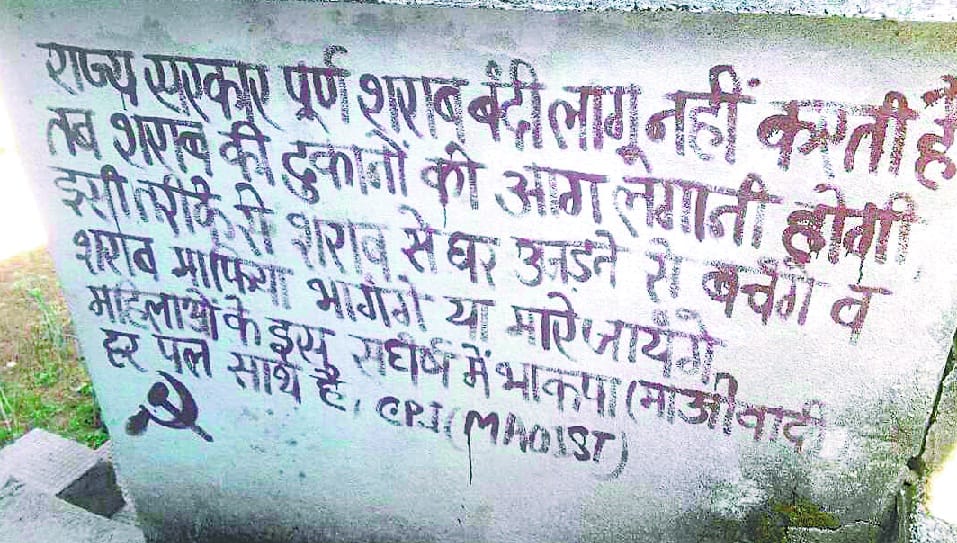 राज्य सरकार पूर्ण शराब बंदी लागू नहीं करती है
तब शराब की दुकानों को आग लगानी होगी
इसी तरीके से शराब से घर उजड़ने से बचेंगे व
शराब माफिया भागेंगे या मारे जायेंगे,
महिलाओं के इस संघर्ष में भाकपा (माओवादी
हर पल साथ है, CPI (MAOIST)